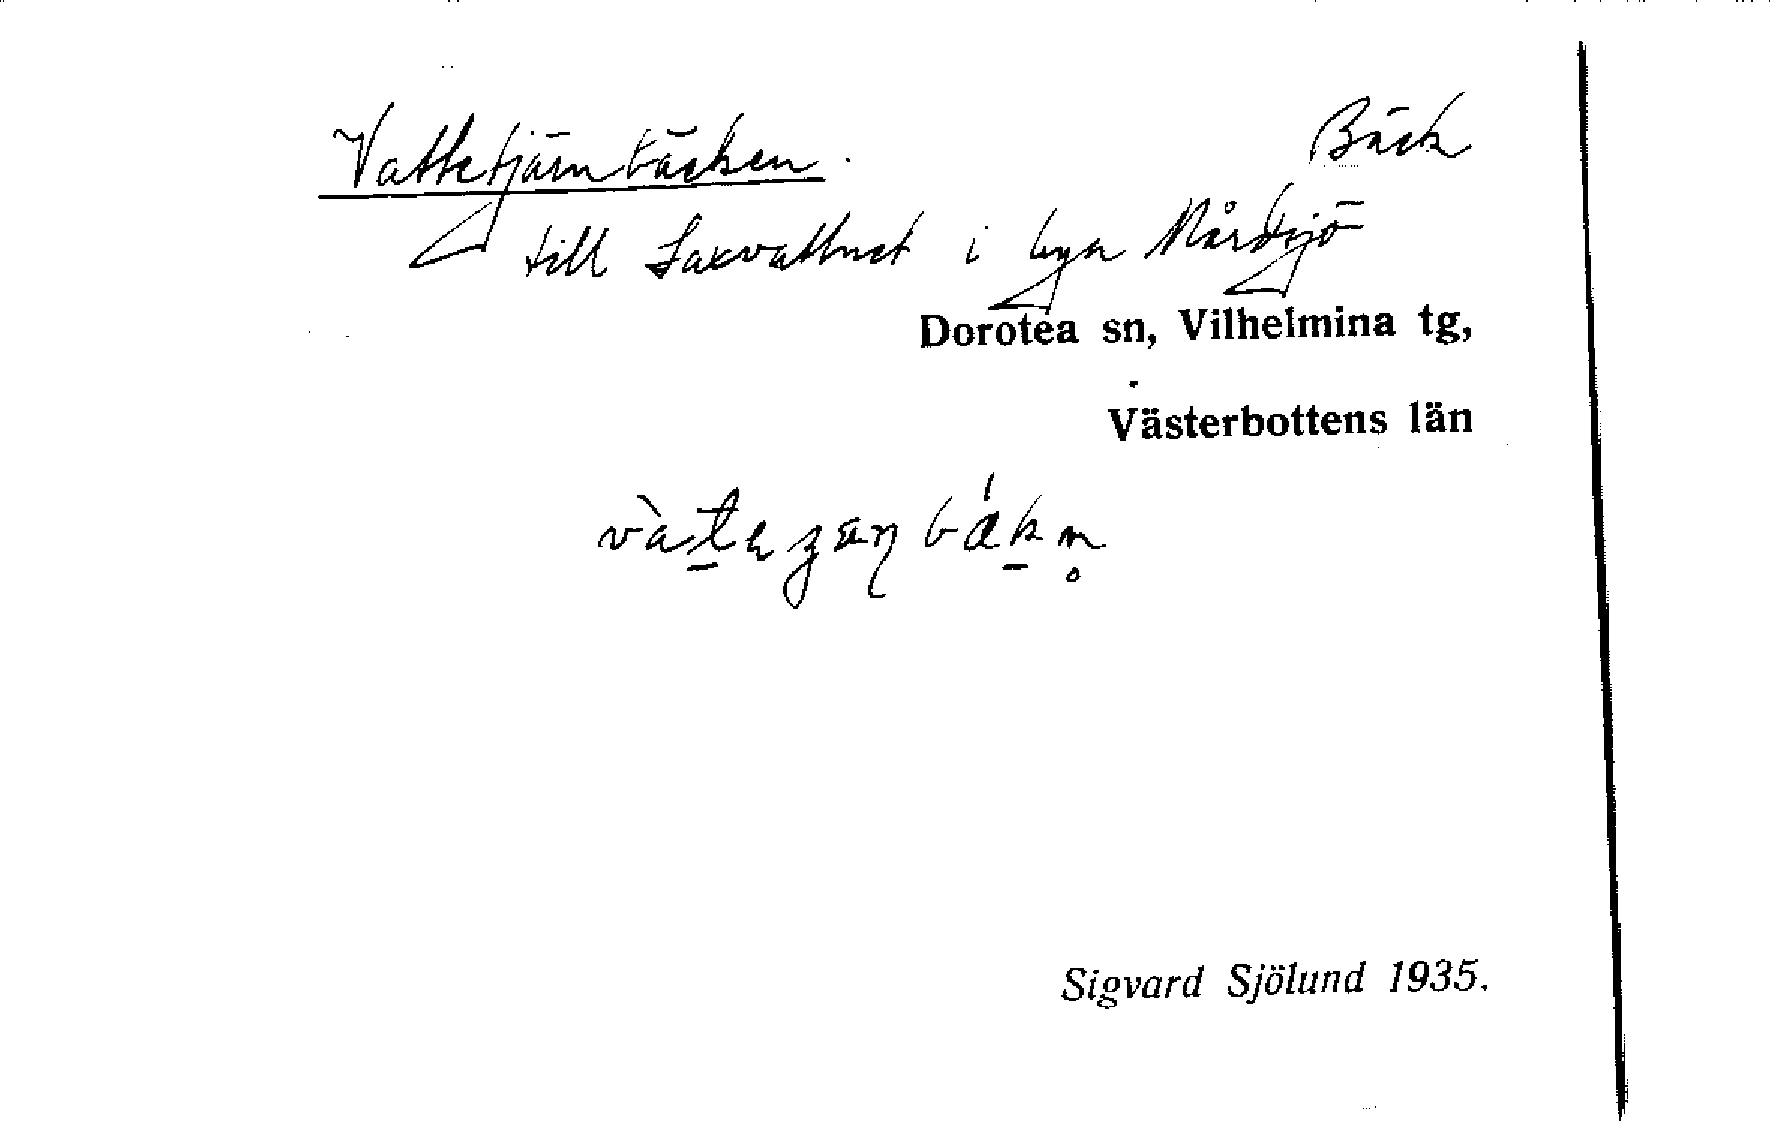 Vattetjärnbäcken. Bäck
till Saxvattnet i byn Mårdsjö
Dorotea sn, Vilhelmina tg,
Västerbottens län
Sigvard Sjölund 1935.